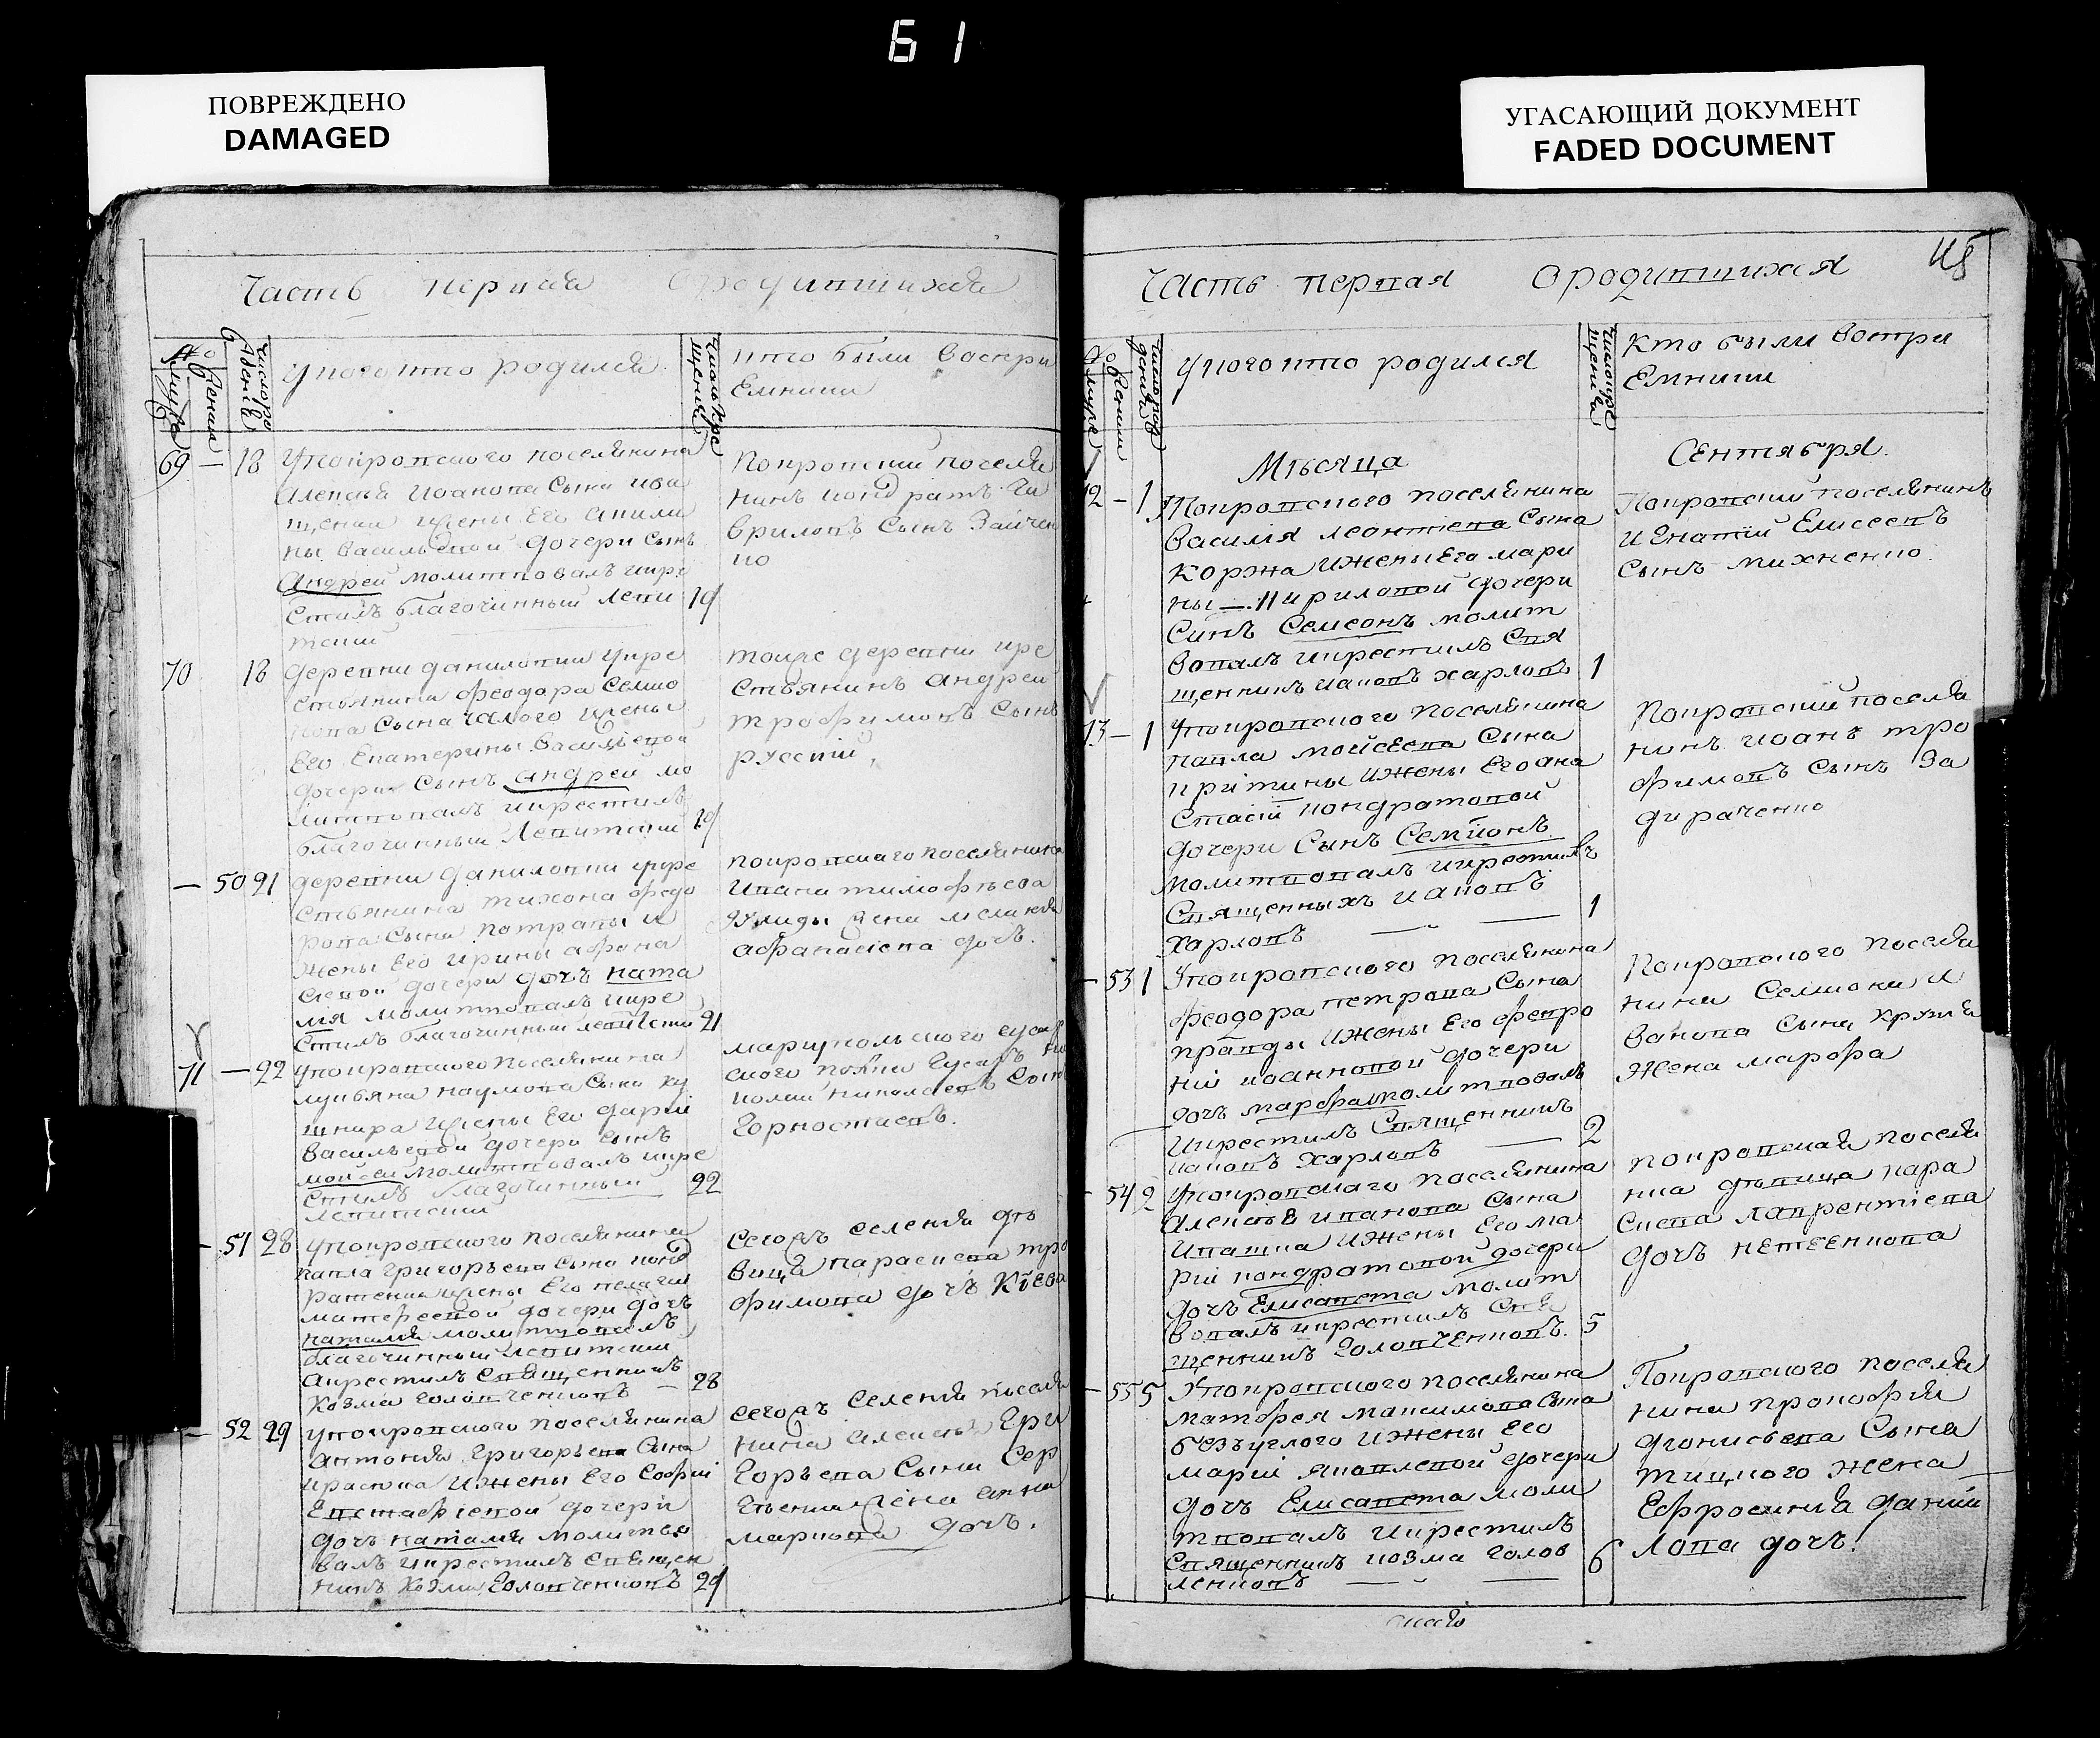 61
ПОВРЕЖДЕНО
DAMAGED
УГАСАЮЩИЙ ДОКУМЕНТ
FADED DOCUMENT
Часть первая о родившихся
у кого кто родился
кто были воспри
емники
69 — 18 У покровского поселянина
Алексея Иоанова сына Ива
щенка и жены его Акили
ны Васильевой дочери сынъ
Андрей молитвовалъ и кре
стилъ благочинный Леви 19
тский
Покровский поселя
нинъ Кондратъ Га
вриловъ сынъ Зайчен
ко
70 18 деревни Даниловки у кре
стьянина Феодора Семио
нова сына Чалого и жены
его Екатерины Васильевой
дочери сынъ Андрей мо
литвовалъ и крестилъ
благочинный Левитский 19
той же деревни кре
стьянинъ Андрей
Трофимовъ сынъ
Русский,
— 50 21 деревни Даниловки у кре
стьянина Тихона Федо
рова сына и
жены его Ирины Афана
сиевой дочери дочь Ната
лия молитвовалъ и кре
стилъ благочинный Левитски 21
покровскаго поселянина
Ивана Тимофеева
жена Мелания
Афанасиева дочь.
71 — 22 у покровского поселянина
Лукьяна Наумова сына Ку
шнира и жены его Дарьи
Васильевой дочери сынъ
Мойсей молитвовалъ и кре
стилъ благочинный 22
Левитский
мариупольского гусар
ского полка гусаръ Ни
колай Николаевъ сын
Горностаевъ.
— 51 28 у покровского поселянина
Павла Григорьева сына Конд
ратенка и жены его Пелагии
Матфеевой дочери дочь
Наталия молитвовалъ
благочинный Левитский
а крестилъ священникъ
Козма Головченковъ — 28
сегожъ селения дѣ
вица Параскева Тро
фимова дочь Киева
— 52 29 у покровского поселянина
Антония Григорьева сына
и жены его Софии
Евстафиевой дочери
дочь Наталия молитво
валъ и крестилъ священ
никъ Козма Головченковъ 29
сегожъ селения поселя
нина Алексея Гри
горьева сына Сер
гѣенка жена Анна
Маркова дочь.
Часть первая о родившихся
у кого кто родился
Кто были воспри
емники
Мѣсяца Сентября.
— 1 У Покровского поселянина
Василия Леонтиева сына
Коржа и жены его Мари
ны — Кириловой дочери
синъ Семеонъ молит
вовалъ и крестилъ свя
щенникъ Иаковъ Харловъ 1
Покровский поселянинъ
Игнатий Елисеевъ
сынъ Михненко.
— 1 У покровского поселянина
Павла Мойсеева сына
и жены его Ана
стасии Кондратовой
дочери сынъ Семионъ
молитвовалъ и крестилъ
священникъ Иаковъ
Харловъ — 1
Покровский поселя
нинъ Иоанъ Тро
фимовъ сынъ За
дираченко
— 53 1 У покровского поселянина
Феодора Петрова сына
Правды и жены его Февро
нии Иоанновой дочери
дочь Марфа молитвовалъ
и крестилъ священникъ
Иаковъ Харловъ — 2
Покровского поселя
нина Семиона И
ванова сына
жена Марфа
— 54 2 У покровского поселянина
Алексѣя Иванова сына
Ивашка и жены его Ма
рии Кондратовой дочери
дочь Елисавета молит
вовалъ и крестилъ свя
щенникъ Головченковъ. 5
покровская поселя
нка дѣвица Пара
скева Лаврентиева
дочь
— 55 5 У покровского поселянина
Матфея Максимова сына
Безъуглого и жены его
Марии Яковлевой дочери
дочь Елисавета моли
твовалъ и крестилъ
священникъ Козма Голов 6
ченковъ — —
Покровского поселя
нина Прокофия
Дионисьева сына
жена
Ефросиния Дании
лова дочь.